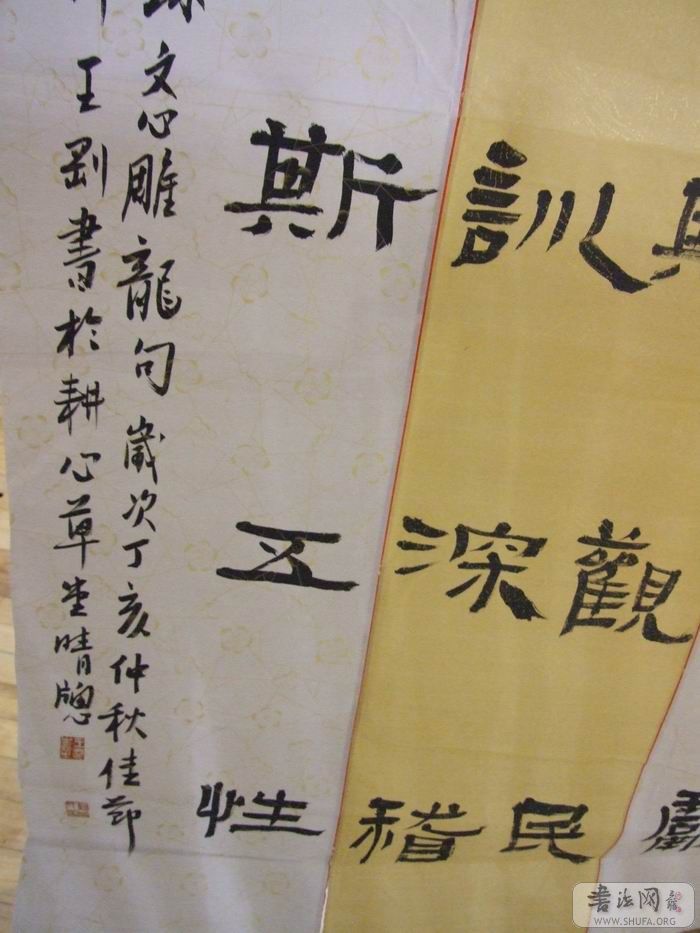 觀民
訓深稽
斯五性
文心雕龍句歲次丁亥仲秋佳節
王剛書於耕心草堂晴牕
書法网
WWW.SHUFA.ORG